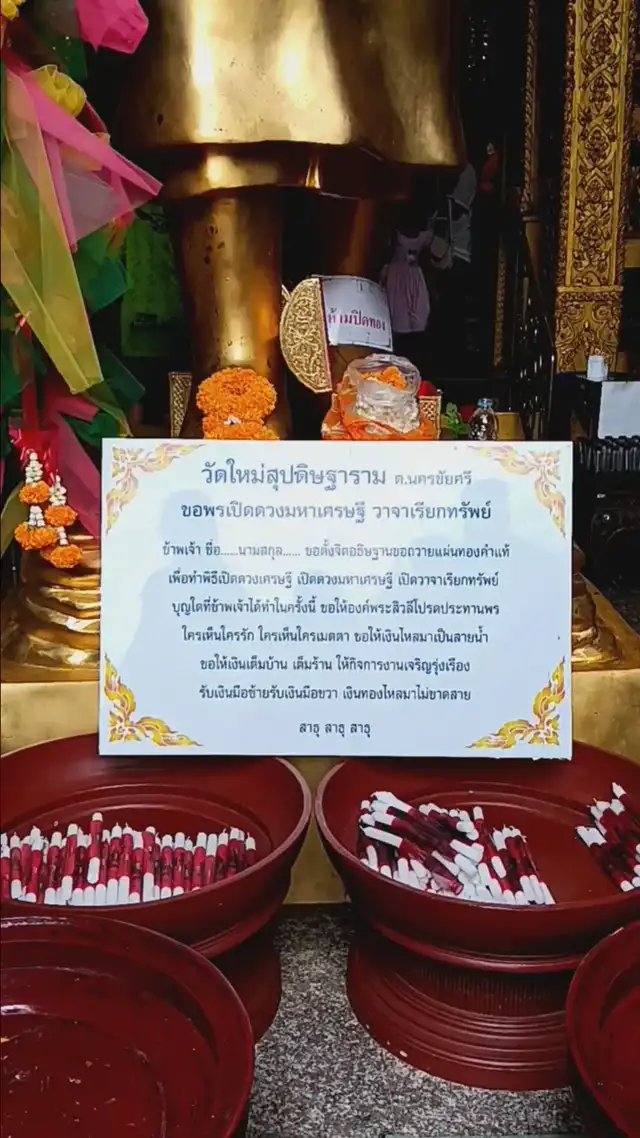 ห้ามปิดทอง
วัดใหม่สุปดิษฐาราม ต.นครชัยศรี
ขอพรเปิดดวงมหาเศรษฐี วาจาเรียกทรัพย์
ข้าพเจ้า ชื่อ......นามสกุล...... ขอตั้งจิตอธิษฐานขอถวายแผ่นทองคำแท้
เพื่อทำพิธีเปิดดวงเศรษฐี เปิดดวงมหาเศรษฐี เปิดวาจาเรียกทรัพย์
บุญใดที่ข้าพเจ้าได้ทำในครั้งนี้ ขอให้องค์พระสิวลีโปรดประทานพร
ใครเห็นใครรัก ใครเห็นใครเมตตา ขอให้เงินไหลมาเป็นสายน้ำ
ขอให้เงินเต็มบ้าน เต็มร้าน ให้กิจการงานเจริญรุ่งเรือง
รับเงินมือซ้ายรับเงินมือขวา เงินทองไหลมาไม่ขาดสาย
สาธุ สาธุ สาธุ